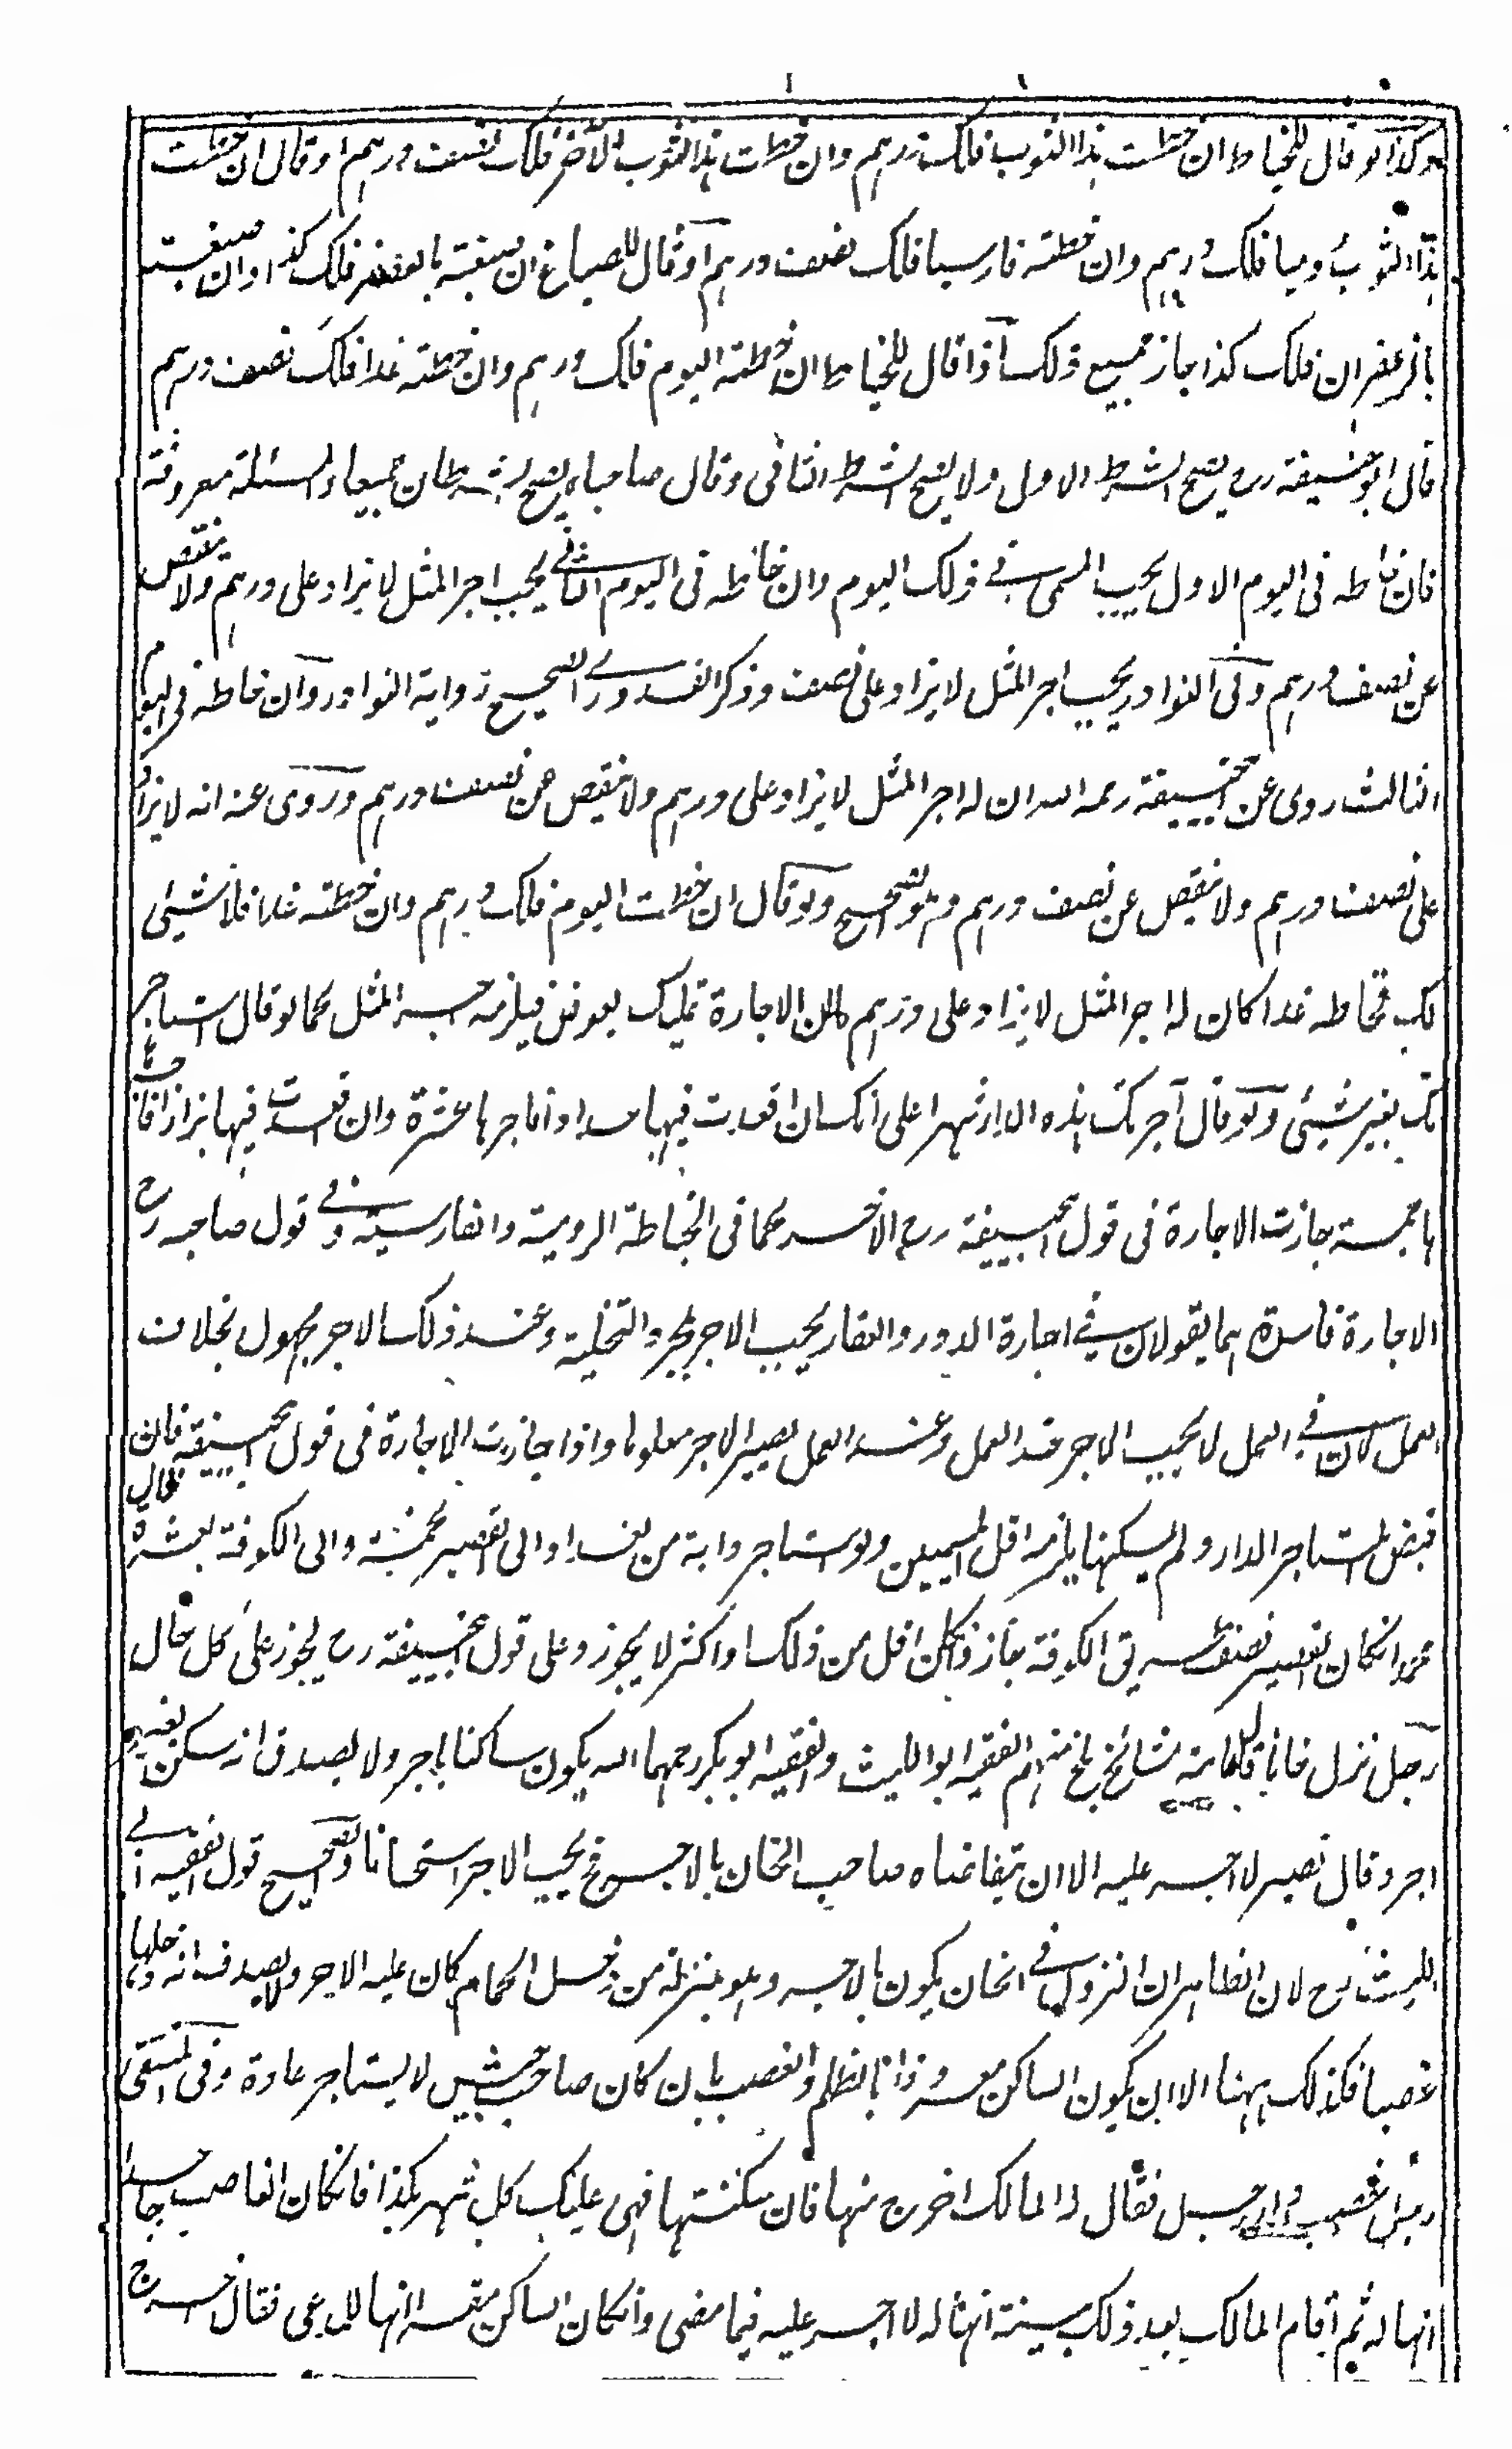 ولو قال للخياط ان خطت هذا الثوب فلك درهم وان خطت هذا الثوب الآخر فلك نصف درهم او قال ان خطت
هذا الثوب روميا فلك درهم وان خطته فارسيا فلك نصف درهم او قال للصباغ ان صبغته بالعصفر فلك كذا وان صبغته
بالزعفران فلك كذا جاز جميع ذلك اذا قال للخياط ان خطته اليوم فلك درهم وان خطته غدا فلك نصف درهم
قال ابو حنيفة رح يصح الشرط الاول ولا يصح الشرط الثانى وقال صاحباه يصح الشرطان جميعا والمسئلة معروفة
فان خاطه فى اليوم الاول يجب المسمى فى ذلك اليوم وان خاطه فى اليوم الثانى يجب اجر المثل لا يزاد على درهم ولا ينقص
عن نصف درهم وفى النوادر يجب اجر المثل لا يزاد على نصف وذكر القدورى الصحيح رواية النوادر وان خاطه فى اليوم
الثالث روى عن ابيحنيفة رحمه الله ان له اجر المثل لا يزاد على درهم ولا ينقص عن نصف درهم وروى عنه انه لا يزاد
على نصف درهم ولا ينقص عن نصف درهم وهو الصحيح ولو قال ان خطت اليوم فلك درهم وان خطته غدا فلا شيئ
لك فخاطه غدا كان له اجر المثل لا يزاد على درهم لان الاجارة تمليك بعوض فيلزمه اجر المثل كما لو قال استاجر
تك بغير شيئ ولو قال آجرتك هذه الدار شهرا على انك ان اقعدت فيها حدادا فاجرها عشرة وان قعدت فيها بزازا فاجر
ها خمسة جازت الاجارة فى قول ابيحنيفة رح الآخر كما فى الخياطة الرومية والفارسية وفى قول صاحبيه رح
الاجارة فاسدة هما يقولان فى اجارة الدور والعقار يجب الاجر بمجرد التخلية وعند ذلك الاجر مجهول بخلاف
العمل لان فى العمل لا يجب الاجر قبل العمل وعند العمل يصير الاجر معلوما واذا جازت الاجارة فى قول ابيحنيفة فان
قبض المستاجر الدار ولم يسكنها يلزمه اقل المسميين ولو استاجر دابة من بغداد الى القصر بخمسة والى الكوفة بعشرة قال
محمد انكان القصر نصف طريق الكوفة جاز وان كان اقل من ذلك او اكثر لا يجوز وعلى قول ابيحنيفة رح يجوز على كل حال
رجل نزل خانا قال عامة مشائخ بلخ منهم الفقيه ابو الليث والفقيه ابو بكر رحمهما الله يكون ساكنا باجر ولا يصدق انه سكن بغير
اجر وقال نصير لا اجر عليه الا ان يتقاضاه صاحب الخان بالاجر فح يجب الاجر استحسانا والصحيح قول الفقيه ابى
الليث رح لان الظاهر ان النزول فى الخان يكون بالاجر وهو بمنزلة من دخل الحمام كان عليه الاجر ولا يصدق انه دخلها
غصبا فكذلك ههنا الا ان يكون الساكن معروفا بالظلم والغصب بان كان صاحب جيش لا يستاجر عادة وفى المنتقى
رجل غصب دار رجل فقال له المالك اخرج منها فان سكنتها فهى عليك كل شهر بكذا فانكان الغاصب جاحدا
انها له ثم اقام المالك بعد ذلك بينة انها له لا اجر عليه فيما مضى وانكان الساكن مقرا انها للمدعى فقال اخرج